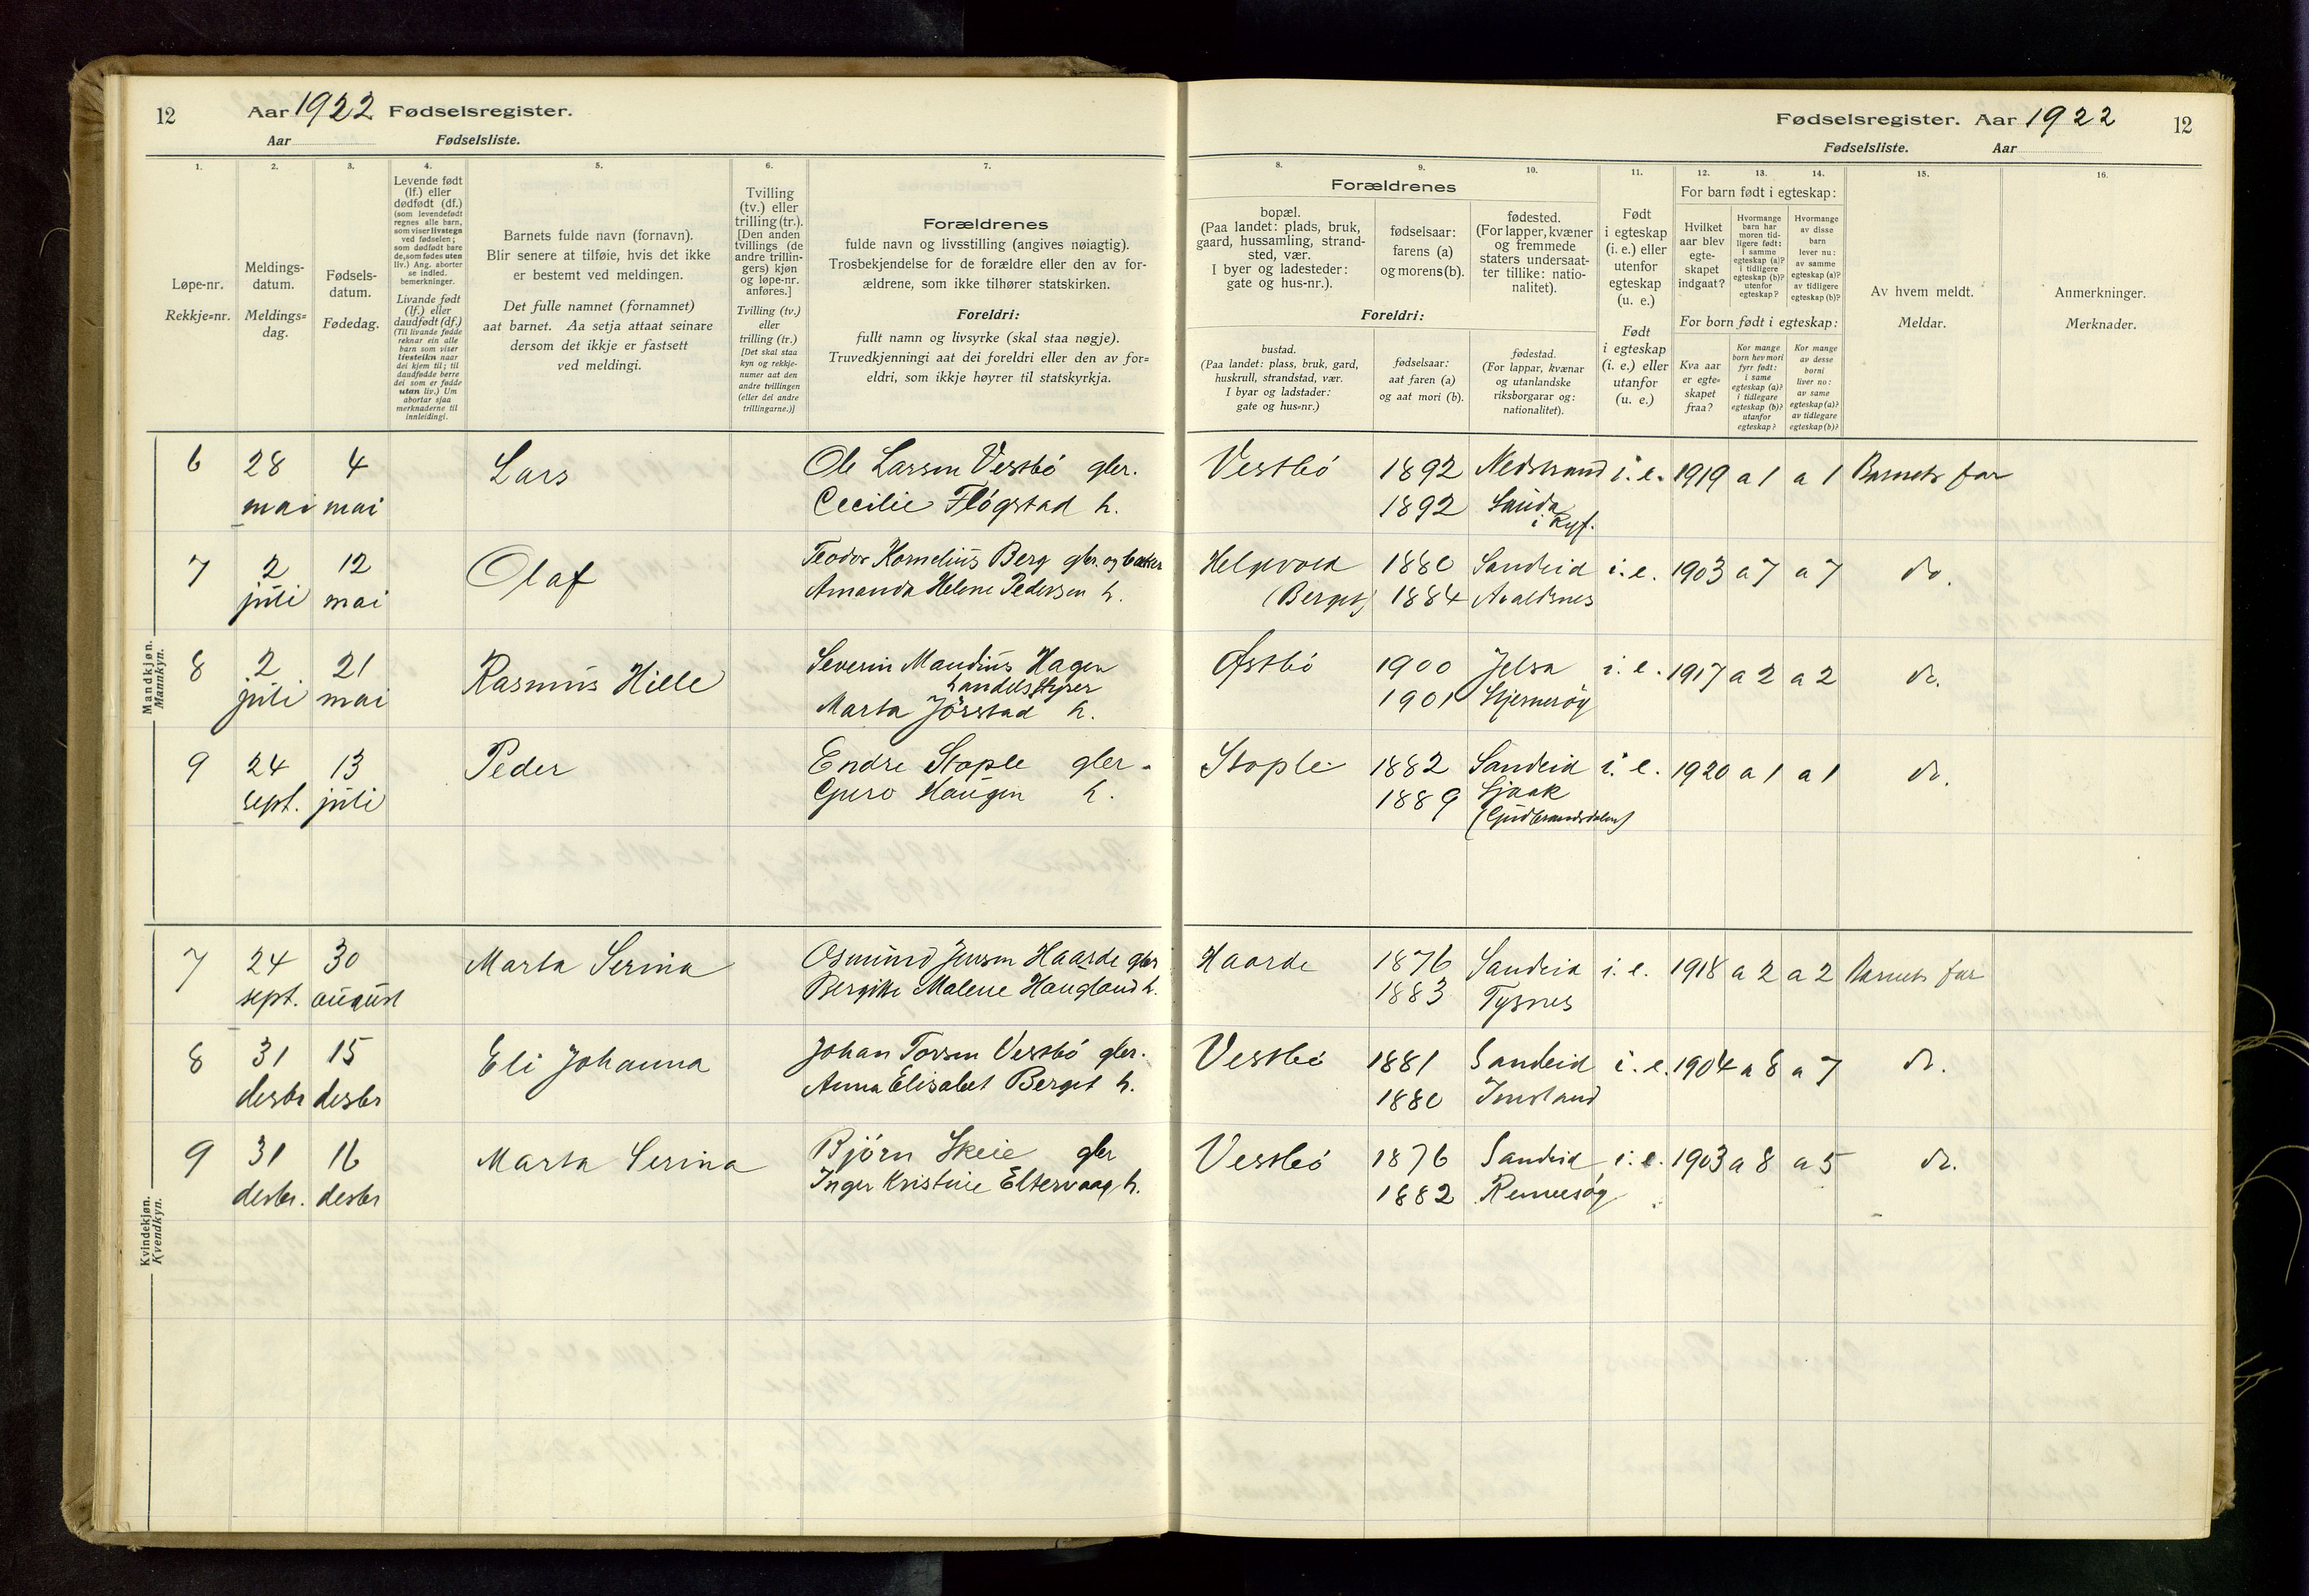 12 Aar 1922 Fødselsregister.
Aar Fødselsliste.
1. 2. 3. 4. 5. 6. 7.
Løpe-nr.
Rekkje-nr.
Meldings-
datum.
Meldings-
dag.
Fødsels-
datum.
Fødedag.
Levende født
(lf.) eller
dødfødt (df.)
(som levendefødt
regnes alle barn,
som viser livstegn
ved fødselen;
som dødfødt bare
de, som fødes uten
liv.) Ang. aborter
se indled.
bemerkninger.
Livande født
(lf.) eller
daudfødt (df.)
(Til livande fødde
reknar ein alle
barn som viser
livsteikn naar
dei kjem til; til
daudfødde berre
dei som er fødde
utan liv.) Um
abortar sjaa
merknaderne til
innleidingi.
Barnets fulde navn (fornavn).
Blir senere at tilføie, hvis det ikke
er bestemt ved meldingen.
Det fulle namnet (fornamnet)
aat barnet. Aa setja attaat seinare
dersom det ikkje er fastsett
ved meldingi.
Tvilling
(tv.) eller
trilling (tr.).
[Den anden
tvillings (de
andre trillin-
gers) kjøn
og løpe-nr.
anføres.]
Tvilling (tv.)
eller
trilling (tr.)
[Det skal staa
kyn og rekkje-
numer aat den
andre tvillingen
(eller dei andre
trillingarne.)]
Forældrenes
fulde navn og livsstilling (angives nøiagtig).
Trosbekjendelse for de forældre eller den av for-
ældrene, som ikke tilhører statskirken.
Foreldri:
fullt namn og livsyrke (skal staa nøgje).
Truvedkjenningi aat dei foreldri eller den av for-
eldri, som ikkje høyrer til statskyrkja.
Mandkjøn.
Mannkyn.
6 28 4 Lars Ole Larsen Vestbö gbr.
mai mai Cecilie Flögstad h.
7 2 12 Olaf Teodor Kornelius Berg gbr. og baker
juli mai Amanda Helene Pedersen h.
8 2 21 Rasmus Hille Severin Maudius Hagen
handelsstyrer
juli mai Marta Jörstad h.
9 24 13 Peder Endre Stople gbr.
sept. juli Guro Haugen h.
Kvindekjøn.
Kvendkyn.
7 24 30 Marta Serina Osmund Jensen Haarde gbr
sept. august Bergitte Malene Haugland h.
8 31 15 Eli Johanna Johan Torsen Vestbö gbr.
desbr desbr Anna Elisabet Berget h.
9 31 16 Marta Serina Björn Skeie gbr
desbr. desbr Inger Kristine Eltervaag h.
Fødselsregister. Aar 1922 12
Fødselsliste. Aar
8. 9. 10. 11. 12. 13. 14. 15. 16.
Forældrenes
bopæl.
(Paa landet: plads, bruk,
gaard, hussamling, strand-
sted, vær.
I byer og ladesteder:
gate og hus-nr.).
fødselsaar:
farens (a)
og morens (b).
fødested.
(For lapper, kvæner
og fremmede
staters undersaat-
ter tillike: natio-
nalitet).
Foreldri:
bustad.
(Paa landet: plass, bruk, gard,
huskrull, strandstad, vær.
I byar og ladstader:
gate og hus-nr.)
fødselsaar:
aat faren (a)
og aat mori (b).
fødestad.
(For lappar, kvænar
og utanlandske
riksborgarar og:
nationalitet).
Født
i egteskap
(i. e.) eller
utenfor
egteskap
(u. e.)
Født
i egteskap
(i. e.) eller
utanfor
(u. e.)
For barn født i egteskap:
Hvilket
aar blev
egte-
skapet
indgaat?
Hvormange
barn har
moren tid-
ligere født:
i samme
egteskap (a)?
i tidligere
egteskap (b)?
utenfor
egteskap?
Hvormange
av disse
barn
lever nu:
av samme
egteskap (a)?
av tidligere
egteskap (b)?
For born født i egteskap:
Kva aar
er egte-
skapet
fraa?
Kor mange
born hev mori
fyrr født:
i same
egteskap (a)?
i tidlegare
egteskap (b)?
utanfor
egteskap?
Kor mange
av desse
borni
liver no:
av same
egteskap (a)?
av tidlegare
egteskap (b)?
Av hvem meldt.
Meldar.
Anmerkninger.
Merknader.
Vestbö 1892 Nedstrand i. e. 1919 a 1 a 1 Barnets far
1892 Sauda
i Ryf.
Helgevold 1880 Sandeid i. e. 1903 a 7 a 7 do.
(Berget) 1884 Avaldsnes
Østbö 1900 Jelsa i. e. 1917 a 2 a 2 do.
1901 Sjernerøy
Stople 1882 Sandeid i. e. 1920 a 1 a 1 do.
1889 Sjaak
(Gudbrandsdalen)
Haarde 1876 Sandeid i. e. 1918 a 2 a 2 Barnets far
1883 Tysnes
Vestbö 1881 Sandeid i. e. 1904 a 8 a 7 do.
1880 Imsland
Vestbö 1876 Sandeid i. e. 1903 a 8 a 5 do.
1882 Rennesøy